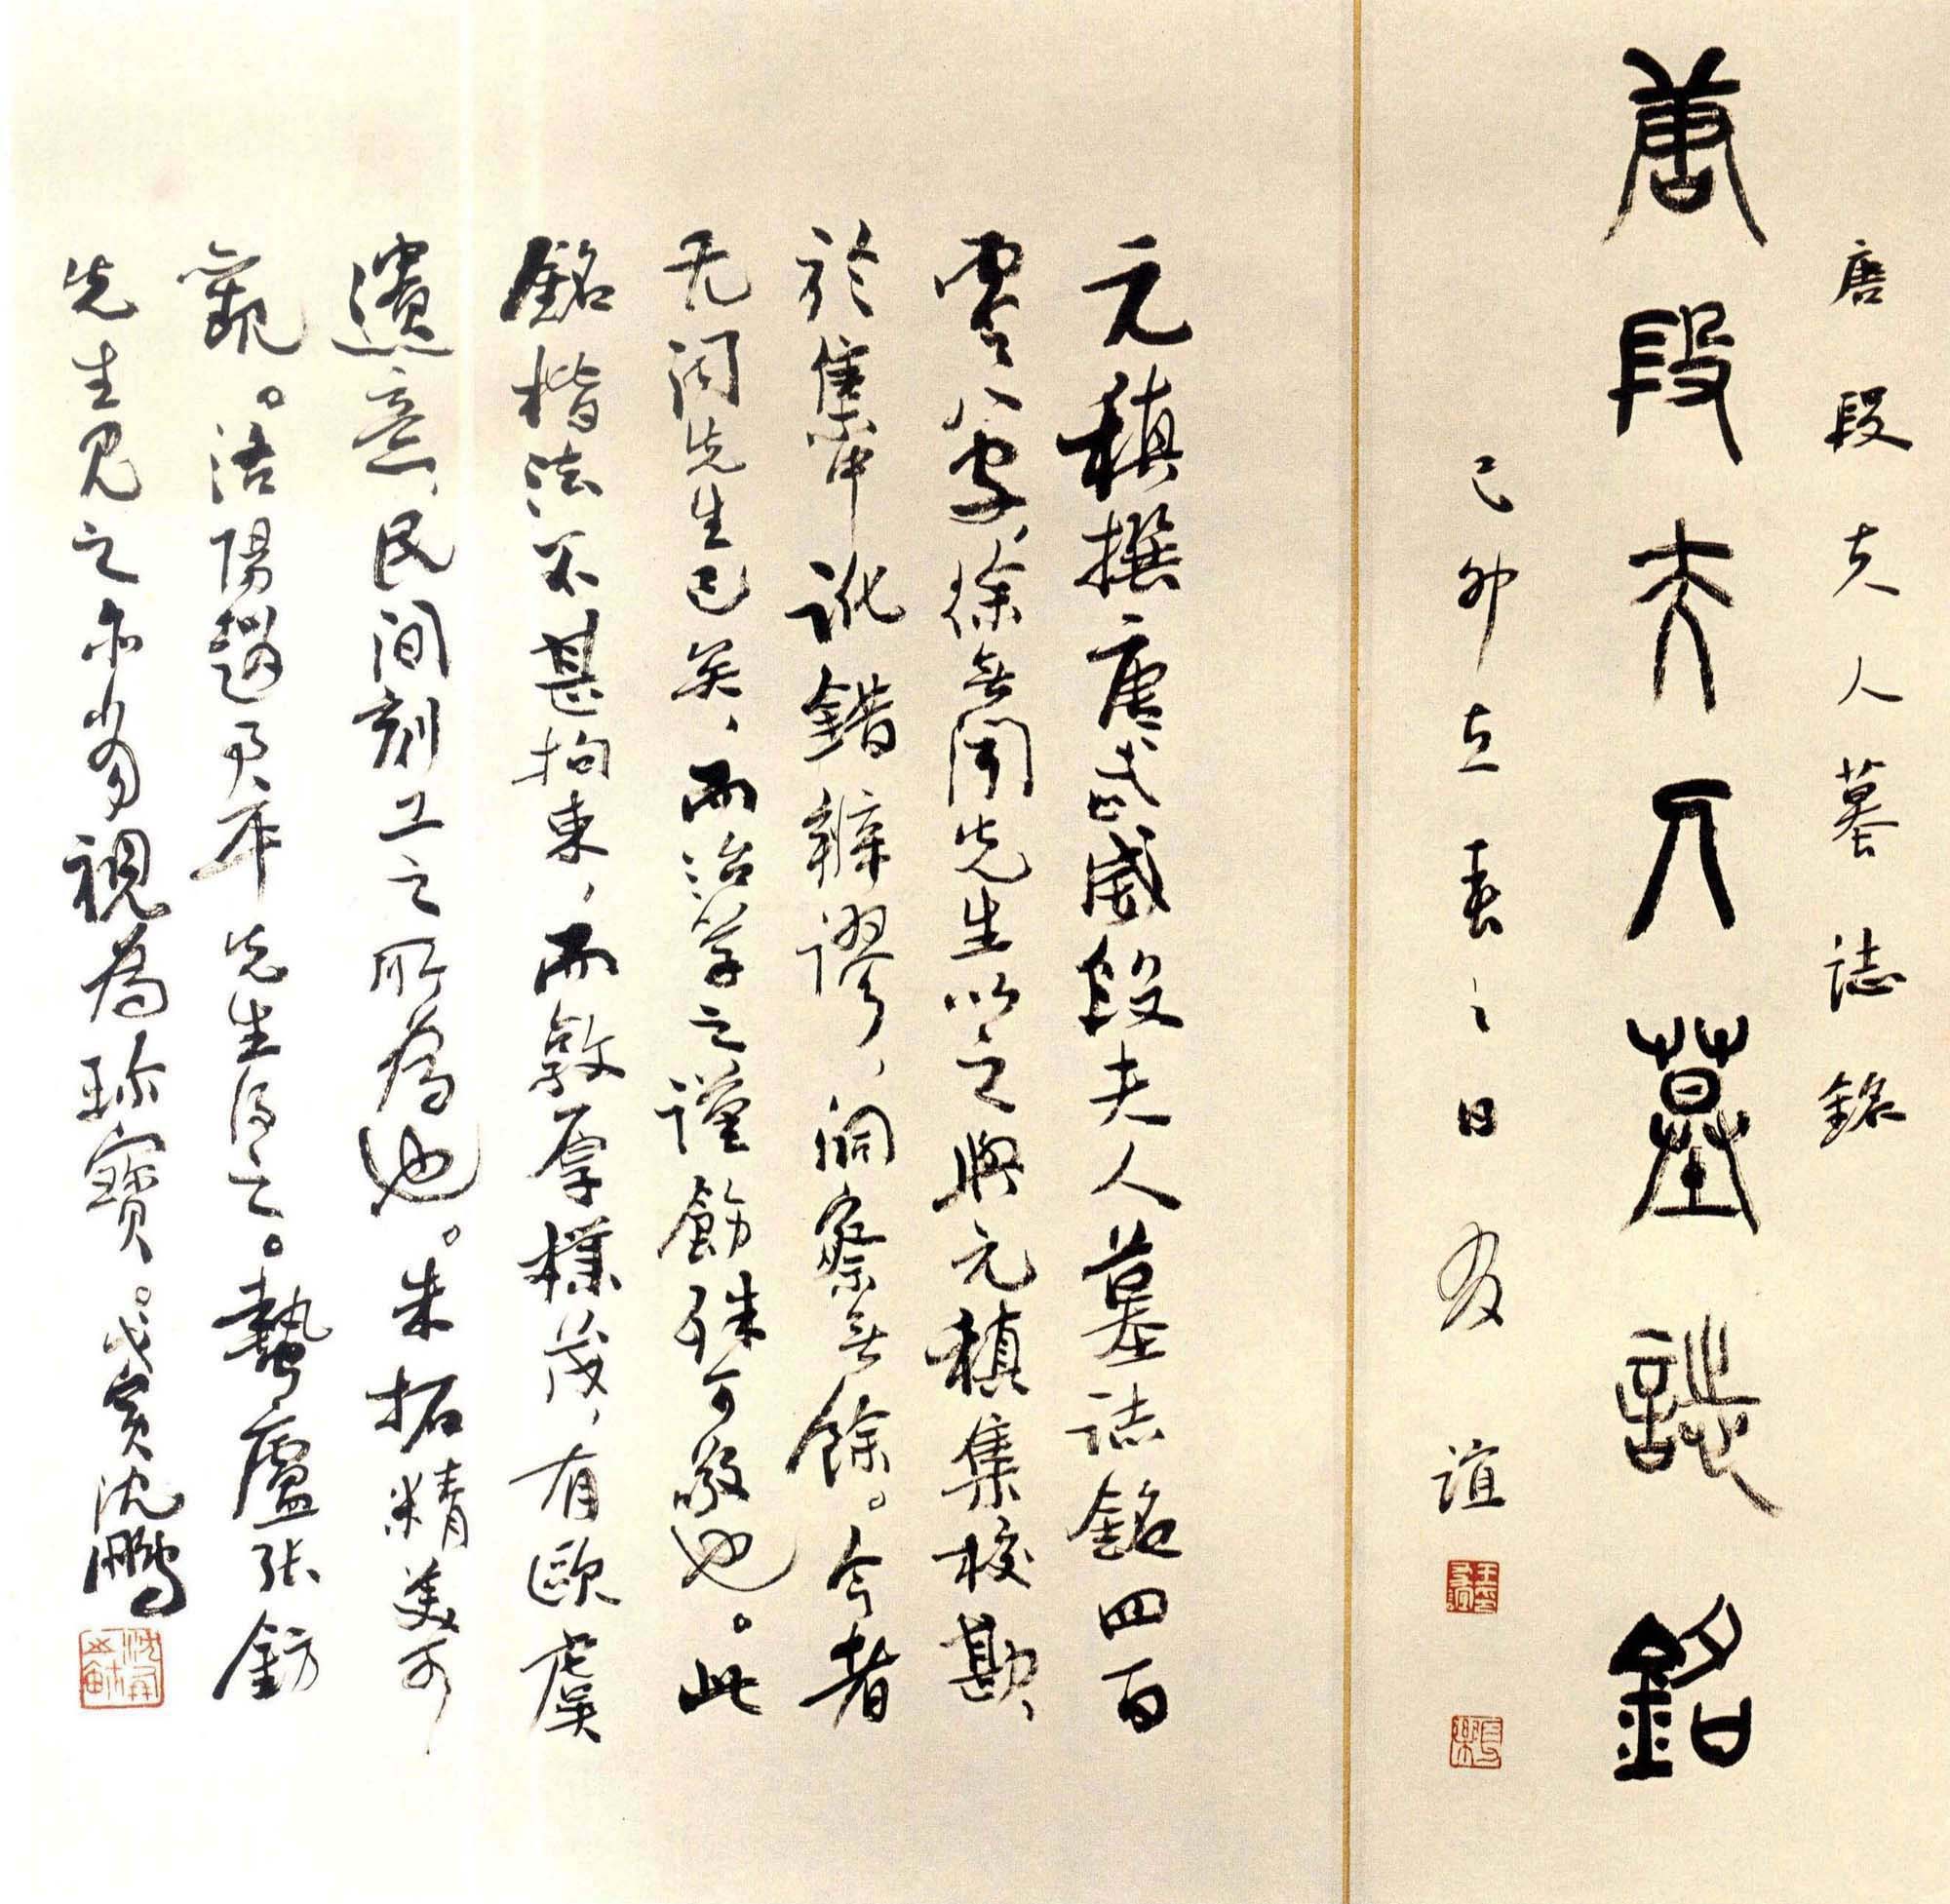 唐段夫人墓誌銘
唐段夫人墓誌銘
己卯立春之日 友誼
元稹撰唐武威段夫人墓誌銘四百
零八字、徐無聞先生以之與元稹集校勘、
於集中訛錯雜謬、洞察無餘。今者
无闻先生已矣、而治学之謹飭殊可敬也。此
銘楷法不甚拘束、而敦厚樸茂、有歐虞
遺意、民间刻工之所為也。朱拓精美可
觀。洛陽趙君平先生得之。蟄廬張鈁
先生見之亦当視為珍寶。戊寅沈鵬